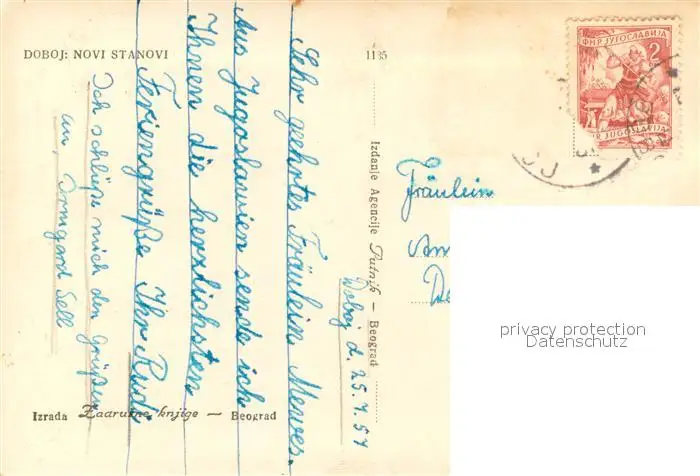 DOBOJ: NOVI STANOVI
1135
Doboj d. 25.7.57
Sehr geehrtes Fräulein Mewes.
Aus Jugoslawien sende ich
Ihnen die herzlichsten
Feriengrüße Ihr Rudi
Ich schließe mich den Grüßen
an, Irmgard Sell
Izdanje Agencije Putnik — Beograd
Izrada Zadružne knjige — Beograd
ФНР ЈУГОСЛАВИЈА
2
FNR JUGOSLAVIJA
Fräulein
privacy protection
Datenschutz